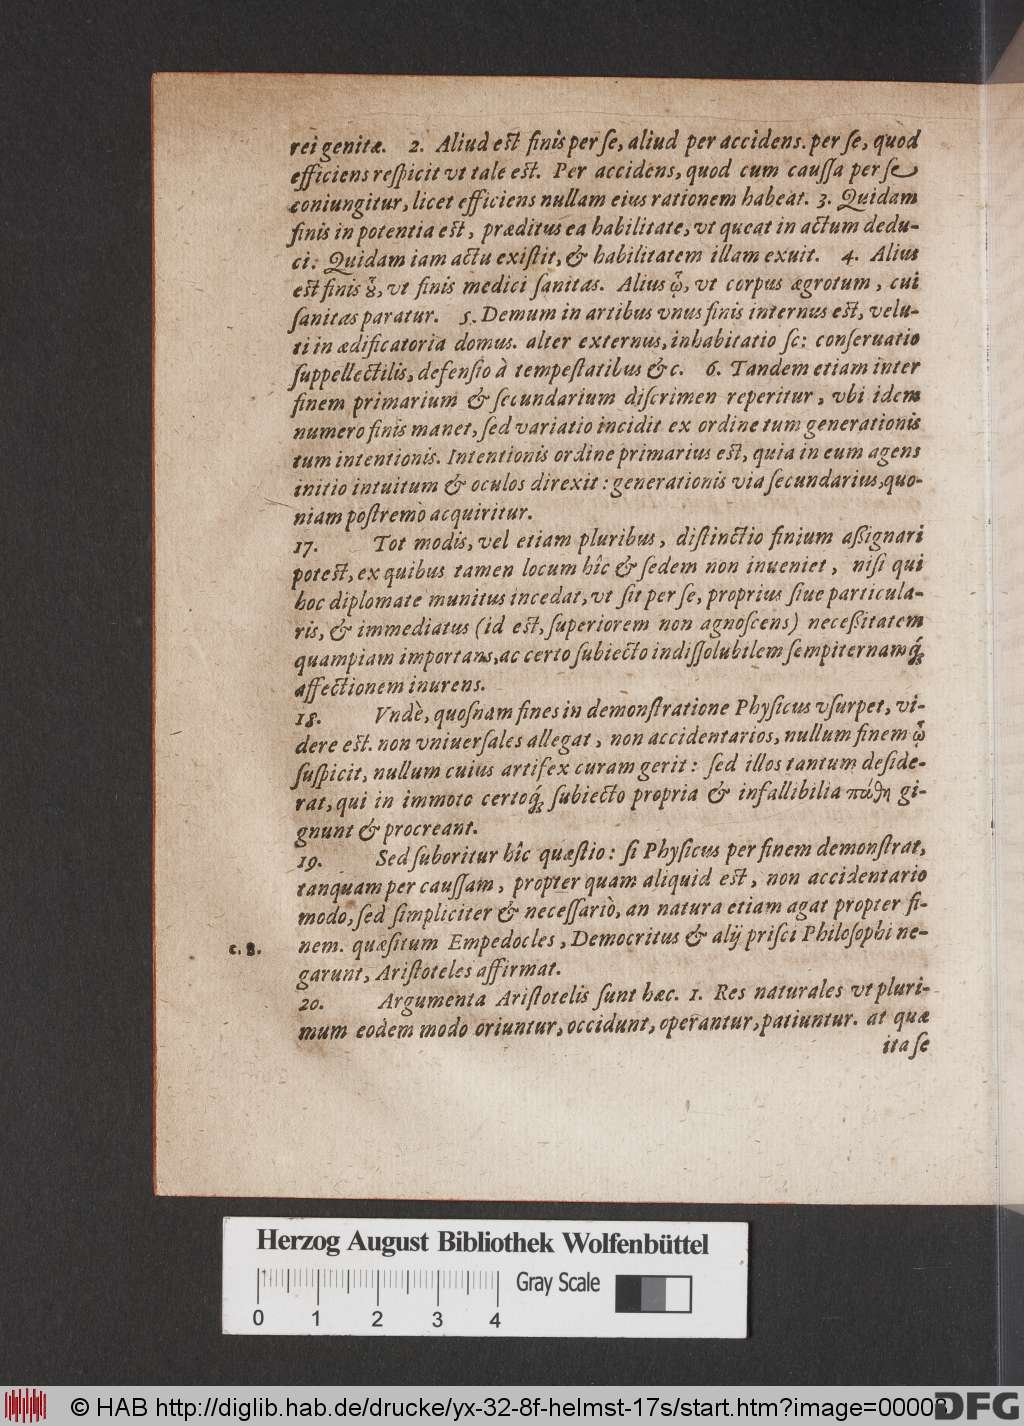 rei genitæ. 2. Aliud est finis per se, aliud per accidens. per se, quod
efficiens respicit vt tale est. Per accidens, quod cum caussa per se
coniungitur, licet efficiens nullam eius rationem habeat. 3. Quidam
finis in potentia est, præditus ea habilitate, vt queat in actum dedu-
ci: Quidam iam actu existit, & habilitatem illam exuit. 4. Alius
est finis οὗ, vt finis medici sanitas. Alius ᾧ, vt corpus ægrotum, cui
sanitas paratur. 5. Demum in artibus vnus finis internus est, velu-
ti in ædificatoria domus. alter externus, inhabitatio sc: conseruatio
suppellectilis, defensio à tempestatibus &c. 6. Tandem etiam inter
finem primarium & secundarium discrimen reperitur, vbi idem
numero finis manet, sed variatio incidit ex ordine tum generationis
tum intentionis. Intentionis ordine primarius est, quia in eum agens
initio intuitum & oculos direxit: generationis via secundarius, quo-
niam postremò acquiritur.
17. Tot modis, vel etiam pluribus, distinctio finium assignari
potest, ex quibus tamen locum hîc & sedem non inueniet, nisi qui
hoc diplomate munitus incedat, vt sit per se, proprius siue particula-
ris, & immediatus (id est, superiorem non agnoscens) necessitatem
quampiam importans, ac certo subiecto indissolubilem sempiternamq́;
affectionem inurens.
18. Vndè, quosnam fines in demonstratione Physicus vsurpet, vi-
dere est. non vniuersales allegat, non accidentarios, nullum finem ᾧ
suspicit, nullum cuius artifex curam gerit: sed illos tantum deside-
rat, qui in immoto certoq́; subiecto propria & infallibilia πάθη gi-
gnunt & procreant.
19. Sed suboritur hîc quæstio: si Physicus per finem demonstrat,
tanquam per caussam, propter quam aliquid est, non accidentario
modo, sed simpliciter & necessariò, an natura etiam agat propter fi-
nem. quæsitum Empedocles, Democritus & alij prisci Philosophi ne-
c. 8.
garunt, Aristoteles affirmat.
20. Argumenta Aristotelis sunt hæc. 1. Res naturales vt pluri-
mum eodem modo oriuntur, occidunt, operantur, patiuntur. at quæ
ita se
Herzog August Bibliothek Wolfenbüttel
Gray Scale
0 1 2 3 4
© HAB http://diglib.hab.de/drucke/yx-32-8f-helmst-17s/start.htm?image=00008
DFG